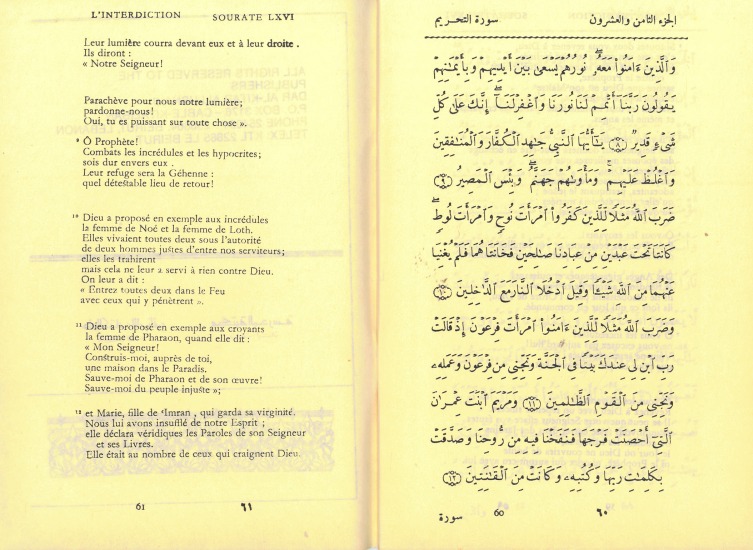 L'INTERDICTION SOURATE LXVI
Leur lumière courra devant eux et à leur droite .
Ils diront :
« Notre Seigneur!
Parachève pour nous notre lumière;
pardonne-nous!
Oui, tu es puissant sur toute chose ».
9 Ô Prophète!
Combats les incrédules et les hypocrites;
sois dur envers eux .
Leur refuge sera la Géhenne :
quel détestable lieu de retour!
10 Dieu a proposé en exemple aux incrédules
la femme de Noé et la femme de Loth.
Elles vivaient toutes deux sous l'autorité
de deux hommes justes d'entre nos serviteurs;
elles les trahirent
mais cela ne leur a servi à rien contre Dieu.
On leur a dit :
« Entrez toutes deux dans le Feu
avec ceux qui y pénètrent ».
11 Dieu a proposé en exemple aux croyants
la femme de Pharaon, quand elle dit :
« Mon Seigneur!
Construis-moi, auprès de toi,
une maison dans le Paradis.
Sauve-moi de Pharaon et de son œuvre!
Sauve-moi du peuple injuste »;
12 et Marie, fille de 'Imran , qui garda sa virginité.
Nous lui avons insufflé de notre Esprit ;
elle déclara véridiques les Paroles de son Seigneur
et ses Livres.
Elle était au nombre de ceux qui craignent Dieu.
61 ٦١
الجزء الثامن والعشرون سورة التحريم
وَٱلَّذِينَ ءَامَنُوا۟ مَعَهُۥ ۖ نُورُهُمْ يَسْعَىٰ بَيْنَ أَيْدِيهِمْ وَبِأَيْمَـٰنِهِمْ
يَقُولُونَ رَبَّنَآ أَتْمِمْ لَنَا نُورَنَا وَٱغْفِرْ لَنَآ ۖ إِنَّكَ عَلَىٰ كُلِّ
شَىْءٍ قَدِيرٌ ﴿٨﴾ يَـٰٓأَيُّهَا ٱلنَّبِىُّ جَـٰهِدِ ٱلْكُفَّارَ وَٱلْمُنَـٰفِقِينَ
وَٱغْلُظْ عَلَيْهِمْ ۚ وَمَأْوَىٰهُمْ جَهَنَّمُ ۖ وَبِئْسَ ٱلْمَصِيرُ ﴿٩﴾
ضَرَبَ ٱللَّهُ مَثَلًا لِّلَّذِينَ كَفَرُوا۟ ٱمْرَأَتَ نُوحٍ وَٱمْرَأَتَ لُوطٍ ۖ
كَانَتَا تَحْتَ عَبْدَيْنِ مِنْ عِبَادِنَا صَـٰلِحَيْنِ فَخَانَتَاهُمَا فَلَمْ يُغْنِيَا
عَنْهُمَا مِنَ ٱللَّهِ شَيْـًٔا وَقِيلَ ٱدْخُلَا ٱلنَّارَ مَعَ ٱلدَّٰخِلِينَ ﴿١٠﴾
وَضَرَبَ ٱللَّهُ مَثَلًا لِّلَّذِينَ ءَامَنُوا۟ ٱمْرَأَتَ فِرْعَوْنَ إِذْ قَالَتْ
رَبِّ ٱبْنِ لِى عِندَكَ بَيْتًا فِى ٱلْجَنَّةِ وَنَجِّنِى مِن فِرْعَوْنَ وَعَمَلِهِۦ
وَنَجِّنِى مِنَ ٱلْقَوْمِ ٱلظَّـٰلِمِينَ ﴿١١﴾ وَمَرْيَمَ ٱبْنَتَ عِمْرَٰنَ
ٱلَّتِىٓ أَحْصَنَتْ فَرْجَهَا فَنَفَخْنَا فِيهِ مِن رُّوحِنَا وَصَدَّقَتْ
بِكَلِمَـٰتِ رَبِّهَا وَكُتُبِهِۦ وَكَانَتْ مِنَ ٱلْقَـٰنِتِينَ ﴿١٢﴾
سورة 60 ٦٠